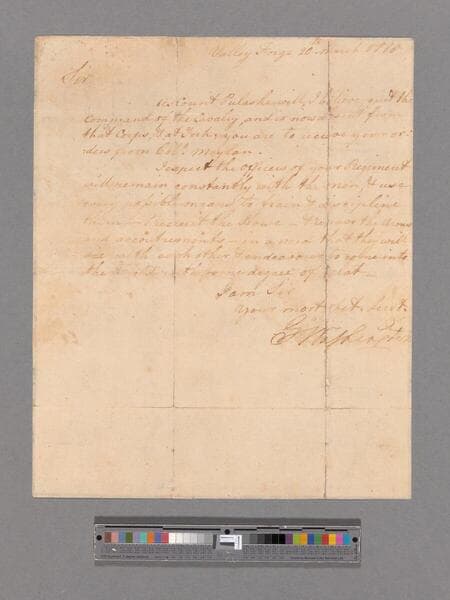 Valley Forge 20th March 1778
Sir
As Count Pulaski will, I believe, quit the
command of the Cavalry, and is now absent from
that Corps, & at York, you are to receive your or-
ders from Colo. Moylan.
I expect the officers of your Regiment
will remain constantly with the men, & use
every possible means to train & discipline
them — recruit the Horse — & repair the Arms
and accoutrements — in a word that they will
vie with each other & endeavour to come into
the Field in the some degree of
I am Sir
Your most obt. Servt.
G Washington